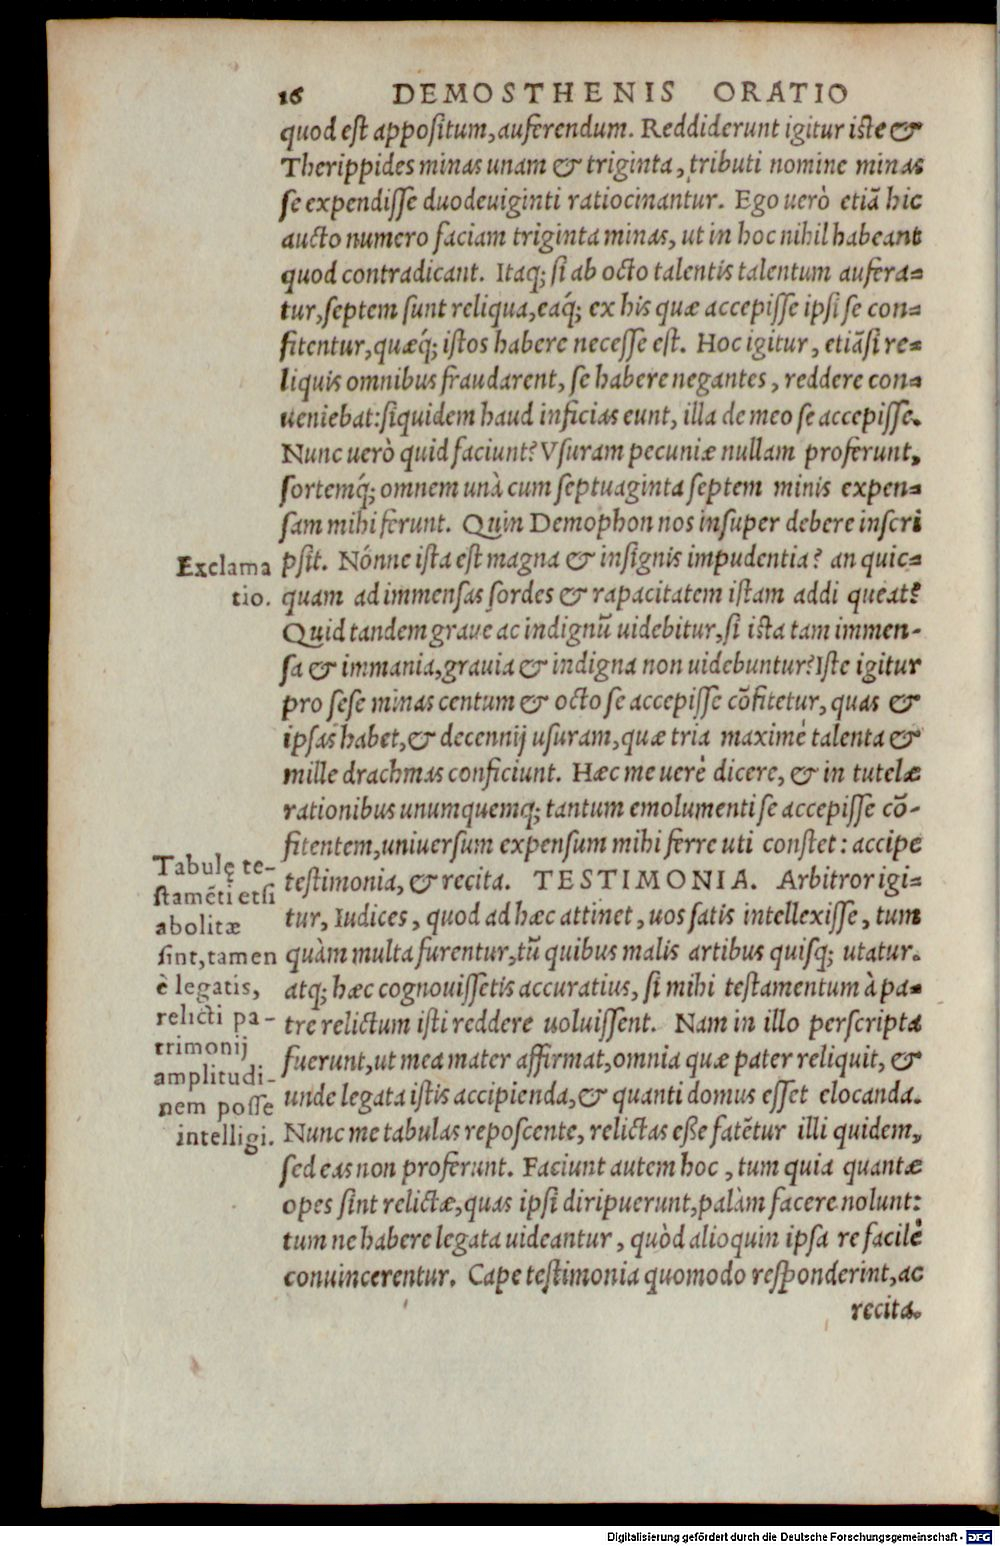 16 DEMOSTHENIS ORATIO
quod est appositum, auferendum. Reddiderunt igitur iste &
Therippides minas unam & triginta, tributi nomine minas
se expendisse duodeuiginti ratiocinantur. Ego uerò etiã hic
aucto numero faciam triginta minas, ut in hoc nihil habeant
quod contradicant. Itaq; si ab octo talentis talentum aufera=
tur, septem sunt reliqua, eaq́; ex his quæ accepisse ipsi se con=
fitentur, quæq́; istos habere necesse est. Hoc igitur, etiãsi re=
liquis omnibus fraudarent, se habere negantes, reddere con=
ueniebat: siquidem haud inficias eunt, illa de meo se accepisse.
Nunc uerò quid faciunt? Vsuram pecuniæ nullam proferunt,
sortemq́; omnem unà cum septuaginta septem minis expen=
sam mihi ferunt. Quin Demophon nos insuper debere inscri
psit. Nónne ista est magna & insignis impudentia? an quic=
quam ad immensas sordes & rapacitatem istam addi queat?
Quid tandem graue ac indignũ uidebitur, si ista tam immen-
sa & immania, grauia & indigna non uidebuntur? Iste igitur
pro sese minas centum & octo se accepisse cõfitetur, quas &
ipsas habet, & decennij usuram, quæ tria maximè talenta &
mille drachmas conficiunt. Hæc me uerè dicere, & in tutelæ
rationibus unumquemq; tantum emolumenti se accepisse cõ-
fitentem, uniuersum expensum mihi ferre uti constet: accipe
testimonia, & recita. TESTIMONIA. Arbitror igi=
tur, Iudices, quod ad hæc attinet, uos satis intellexisse, tum
quàm multa furentur, tũ quibus malis artibus quisq; utatur.
atq; hæc cognouissetis accuratius, si mihi testamentum à pa=
tre relictum isti reddere uoluissent. Nam in illo perscripta
fuerunt, ut mea mater affirmat, omnia quæ pater reliquit, &
unde legata istis accipienda, & quanti domus esset elocanda.
Nunc me tabulas reposcente, relictas esse fatẽtur illi quidem,
sed eas non proferunt. Faciunt autem hoc, tum quia quantæ
opes sint relictæ, quas ipsi diripuerunt, palàm facere nolunt:
tum ne habere legata uideantur, quòd alioquin ipsa re facilè
conuincerentur. Cape testimonia quomodo responderint, ac
recita.
Exclama
tio.
Tabulę te-
stamẽti etsi
abolitæ
sint, tamen
è legatis,
relicti pa-
trimonij
amplitudi-
nem posse
intelligi.
Digitalisierung gefördert durch die Deutsche Forschungsgemeinschaft - DFG